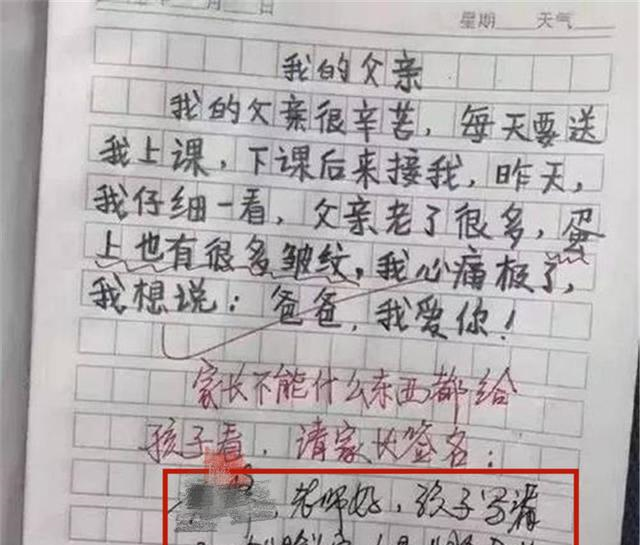 月 日
星期 天气
我的父亲
我的父亲很辛苦，每天要送
我上课，下课后来接我，昨天，
我仔细一看，父亲老了很多，蛋
上也有很多皱纹，我心痛极了，
我想说：爸爸，我爱你！
家长不能什么东西都给
孩子看，请家长签名：
老师好，孩子写错